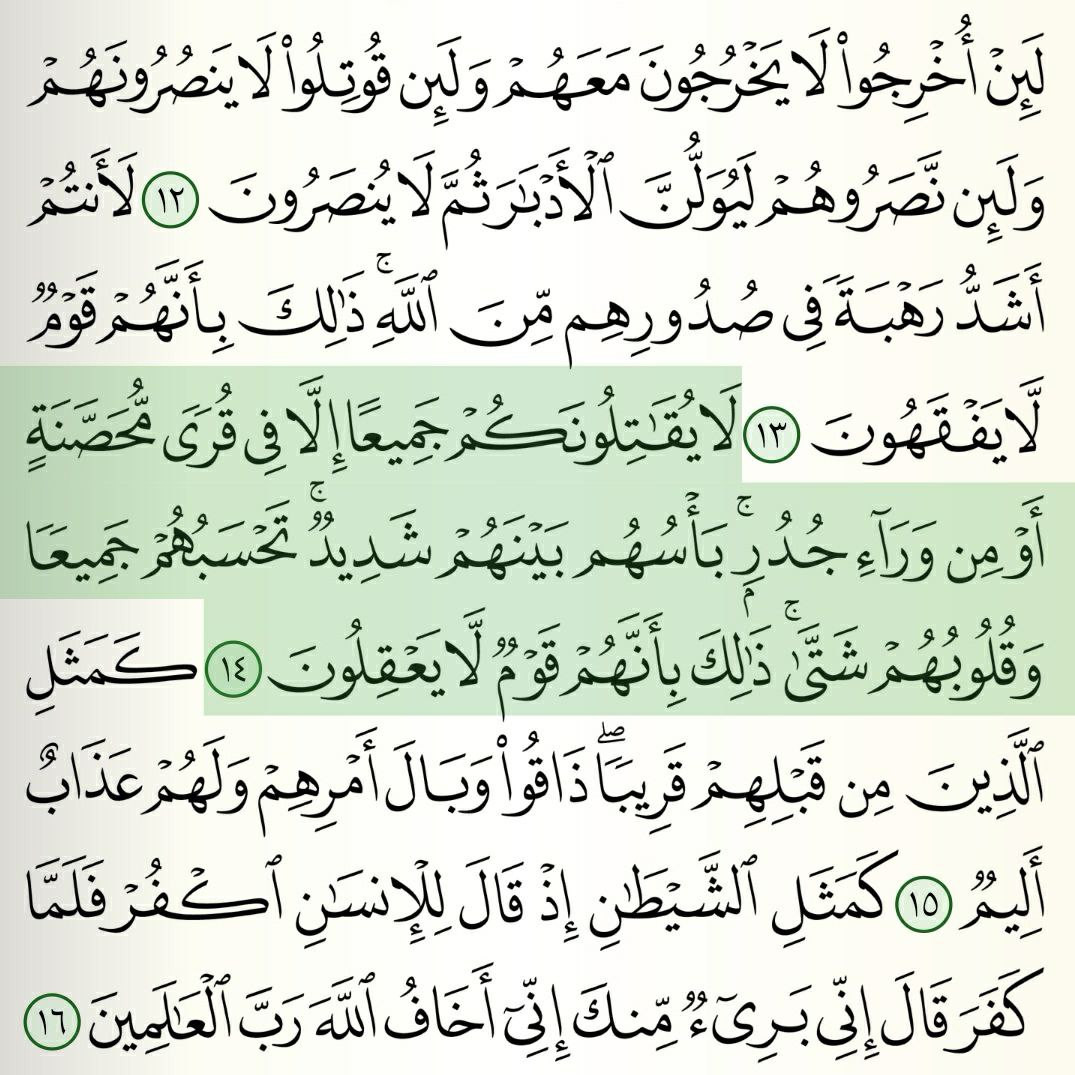 لَئِنۡ أُخۡرِجُواْ لَا يَخۡرُجُونَ مَعَهُمۡ وَلَئِن قُوتِلُواْ لَا يَنصُرُونَهُمۡ
وَلَئِن نَّصَرُوهُمۡ لَيُوَلُّنَّ ٱلۡأَدۡبَٰرَ ثُمَّ لَا يُنصَرُونَ ١٢ لَأَنتُمۡ
أَشَدُّ رَهۡبَةٗ فِي صُدُورِهِم مِّنَ ٱللَّهِۚ ذَٰلِكَ بِأَنَّهُمۡ قَوۡمٞ
لَّا يَفۡقَهُونَ ١٣ لَا يُقَٰتِلُونَكُمۡ جَمِيعًا إِلَّا فِي قُرٗى مُّحَصَّنَةٍ
أَوۡ مِن وَرَآءِ جُدُرِۭۚ بَأۡسُهُم بَيۡنَهُمۡ شَدِيدٞۚ تَحۡسَبُهُمۡ جَمِيعٗا
وَقُلُوبُهُمۡ شَتَّىٰۚ ذَٰلِكَ بِأَنَّهُمۡ قَوۡمٞ لَّا يَعۡقِلُونَ ١٤ كَمَثَلِ
ٱلَّذِينَ مِن قَبۡلِهِمۡ قَرِيبٗاۖ ذَاقُواْ وَبَالَ أَمۡرِهِمۡ وَلَهُمۡ عَذَابٌ
أَلِيمٞ ١٥ كَمَثَلِ ٱلشَّيۡطَٰنِ إِذۡ قَالَ لِلۡإِنسَٰنِ ٱكۡفُرۡ فَلَمَّا
كَفَرَ قَالَ إِنِّي بَرِيٓءٞ مِّنكَ إِنِّيٓ أَخَافُ ٱللَّهَ رَبَّ ٱلۡعَٰلَمِينَ ١٦